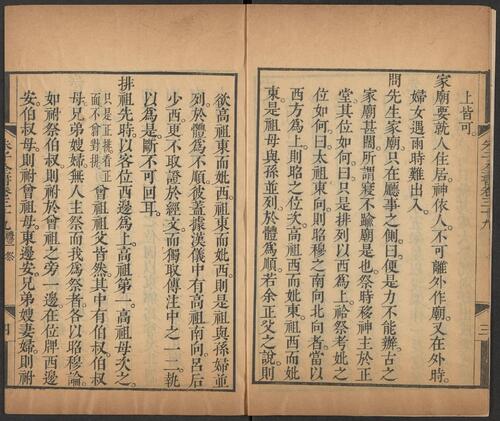 上皆可。
家廟要就人住居。神依人。不可離外作廟。又在外時。
婦女遇雨時難出入。
問先生家廟只在廳事之側。曰便是力不能辦。古之
家廟甚闊。所謂寢不踰廟是也。祭時移神主於正
堂。其位如何。曰只是排列以西為上。祫祭考妣之
位如何。曰太祖東向。則昭穆之南向北向者。當以
西方為上。則昭之位次。高祖西而妣東。祖西而妣
東。是祖母與孫並列。於體為順。若余正父之說。則
欲高祖東而妣西。祖東而妣西。則是祖與孫婦並
列。於體為不順。彼蓋據漢儀中有高祖南向。呂后
少西。更不取證於經文。而獨取傳注中之一二。執
以為是。斷不可回耳。
排祖先時。以客位西邊為上。高祖第一。高祖母次之。
只是正排看正面不曾對排
曾祖祖父皆然。其中有伯叔伯叔
母兄弟嫂婦。無人主祭而我為祭者。各以昭穆論。
如祔祭伯叔。則祔於曾祖之旁一邊。在位牌西邊
安。伯叔母則祔曾祖母東邊安。兄弟嫂妻婦。則祔
朱子全書卷三十九
三
朱子全書卷三十九
禮
祭
四